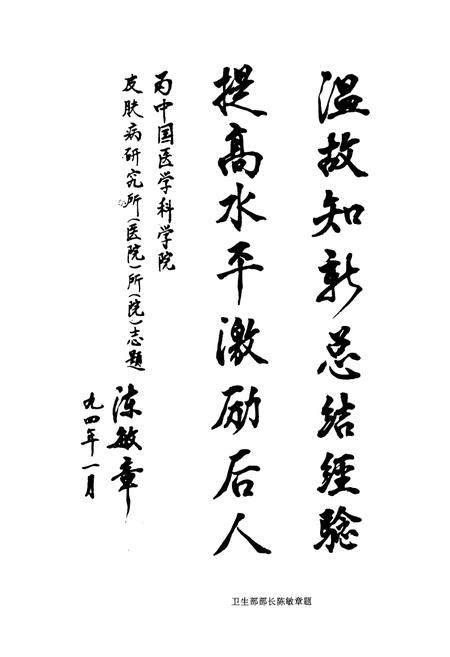 温故知新总结经验
提高水平激励后人
为中国医学科学院
皮肤病研究所(医院)所(院)志题
陈敏章
九四年一月
卫生部部长陈敏章题